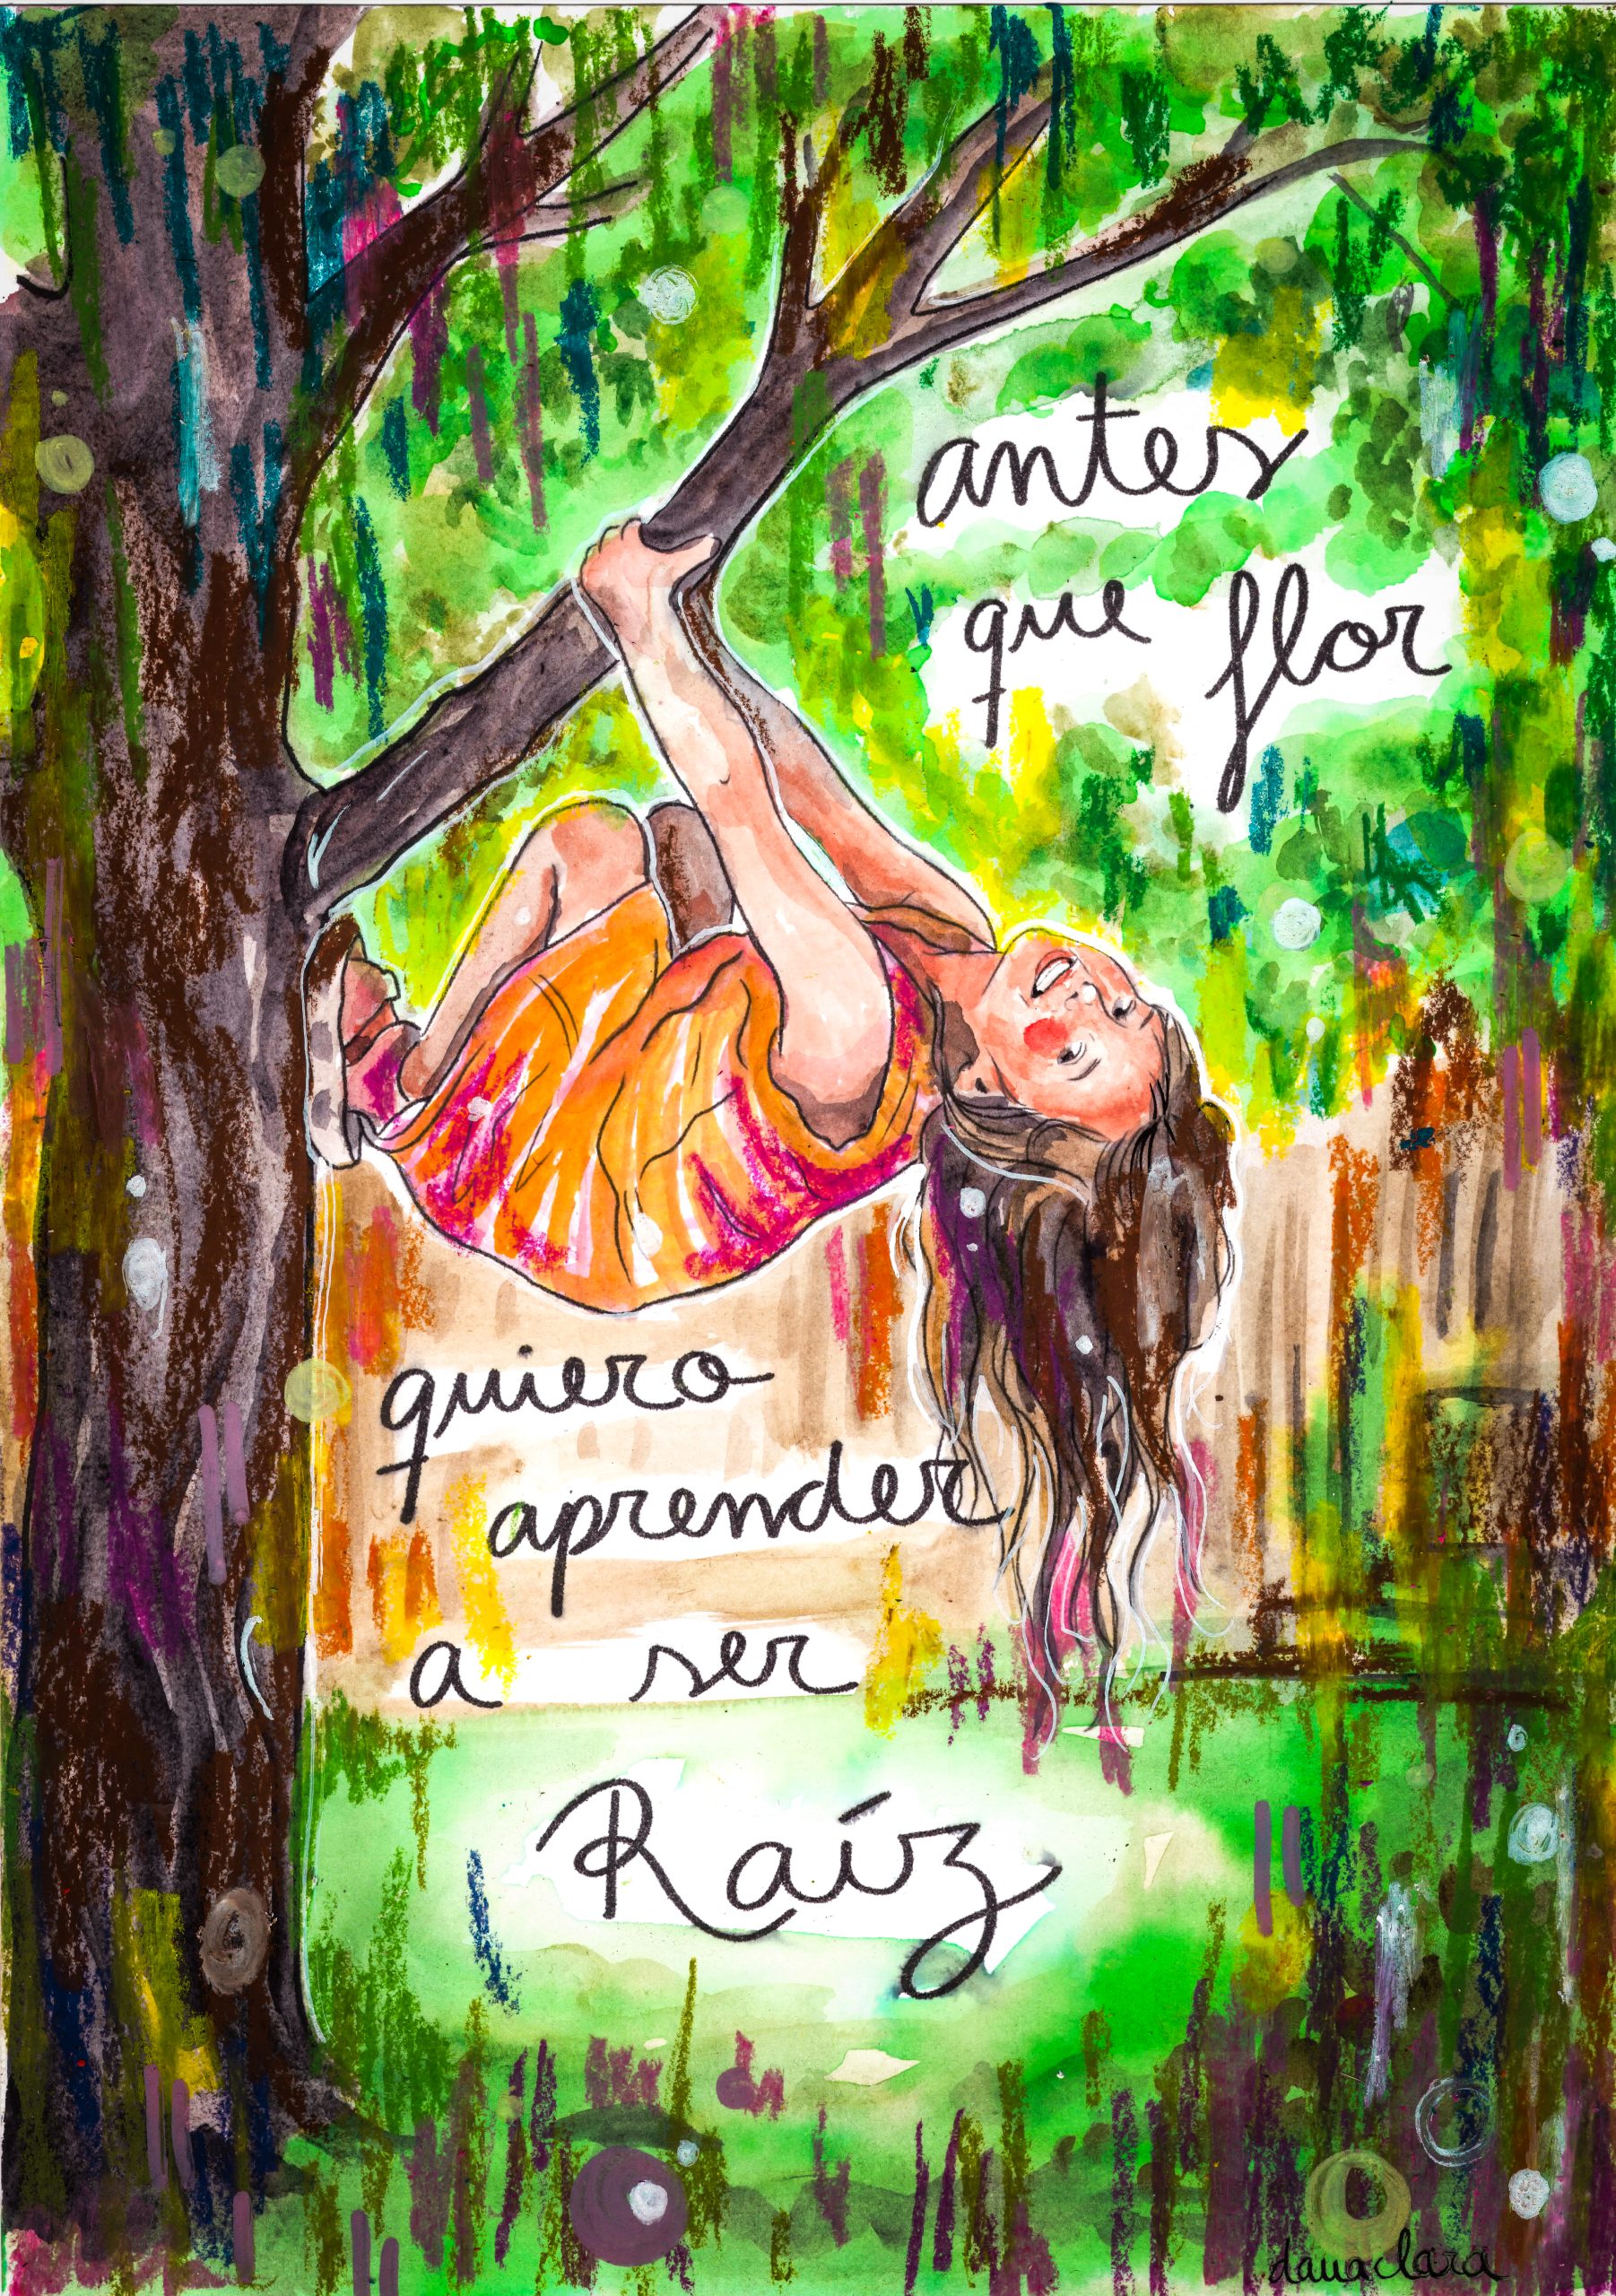 antes
que flor
quiero
aprender
a ser
Raíz
dauaclara